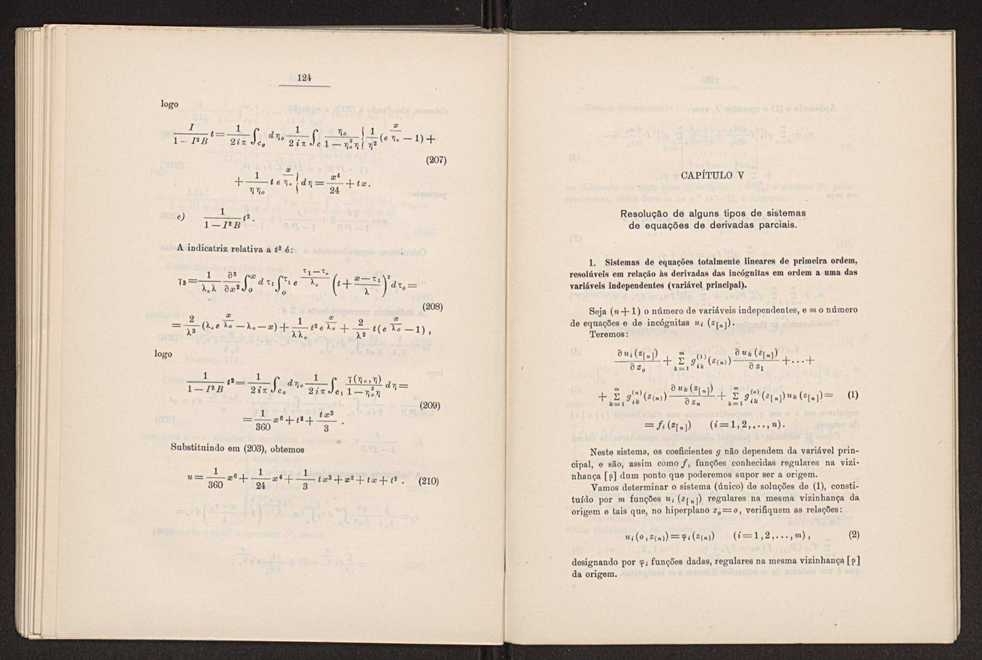 124
logo
I/(1 − I²B) t = 1/(2iπ) ∫_{C_o} dη_o 1/(2iπ) ∫_C η_o/(1 − η_o²η) { 1/η² (e^{x/η_o} − 1) +
(207)
+ 1/(η η_o) t e^{x/η_o} } dη = x⁴/24 + tx.
c) 1/(1 − I²B) t².
A indicatriz relativa a t² é:
γ₃ = 1/(λ_o λ) ∂²/∂x² ∫_o^x dτ₁ ∫_o^{τ₁} e^{(τ₁−τ_o)/λ_o} (t + (x − τ₁)/λ)² dτ_o =
(208)
= 2/λ³ (λ_o e^{x/λ_o} − λ_o − x) + 1/(λλ_o) t² e^{x/λ_o} + 2/λ² t (e^{x/λ_o} − 1) ,
logo
1/(1 − I²B) t² = 1/(2iπ) ∫_{C_o} dη_o 1/(2iπ) ∫_{C₁} γ(η_o, η)/(1 − η_o²η) dη =
(209)
= 1/360 x⁶ + t² + tx³/3 .
Substituindo em (203), obtemos
u = 1/360 x⁶ + 1/24 x⁴ + 1/3 tx³ + x² + tx + t² . (210)
CAPÍTULO V
Resolução de alguns tipos de sistemas
de equações de derivadas parciais.
1. Sistemas de equações totalmente lineares de primeira ordem,
resolúveis em relação às derivadas das incógnitas em ordem a uma das
variáveis independentes (variável principal).
Seja (n + 1) o número de variáveis independentes, e m o número
de equações e de incógnitas u_i (z_{[n]}).
Teremos:
∂u_i(z_{[n]})/∂z_o + Σ_{k=1}^m g_{ik}^{(1)}(z_{(n)}) ∂u_k(z_{[n]})/∂z₁ + . . . +
+ Σ_{k=1}^m g_{ik}^{(n)}(z_{(n)}) ∂u_k(z_{[n]})/∂z_n + Σ_{k=1}^m g_{ik}^{(o)}(z_{[n]}) u_k(z_{[n]}) = (1)
= f_i(z_{[n]}) (i = 1, 2, . . . , n).
Neste sistema, os coeficientes g não dependem da variável prin-
cipal, e são, assim como f, funções conhecidas regulares na vizi-
nhança [ρ] dum ponto que poderemos supor ser a origem.
Vamos determinar o sistema (único) de soluções de (1), consti-
tuído por m funções u_i (z_{[n]}) regulares na mesma vizinhança da
origem e tais que, no hiperplano z_o = o, verifiquem as relações:
u_i (o, z_{(n)}) = φ_i (z_{(n)}) (i = 1, 2, . . . , m) , (2)
designando por φ_i funções dadas, regulares na mesma vizinhança [ρ]
da origem.